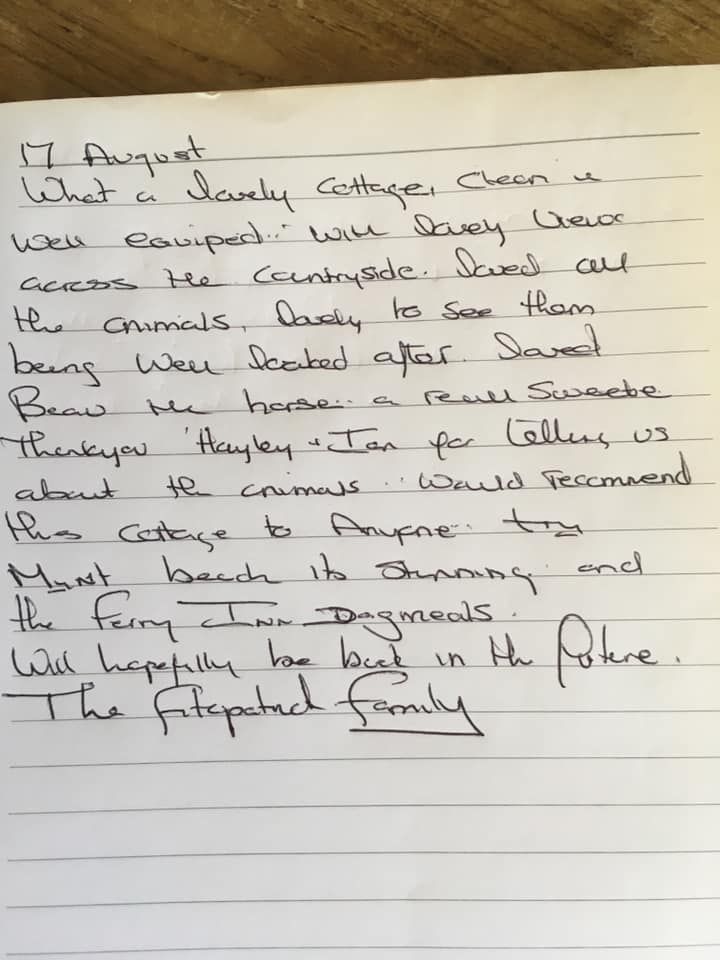 17 August
What a lovely Cottage, Clean &
well equiped.. with lovely views
across the Countryside. Loved all
the animals, lovely to see them
being well looked after. Loved
Beau the horse.. a reall Sweetie
Thankyou Hayley + Ian for telling us
about the animals.. would reccmmend
this cottage to Anyone.. try
beach its Stunning. and
the Ferry Inn meals.
Will hopefully be back in the future.
The Fitzpatrick Family